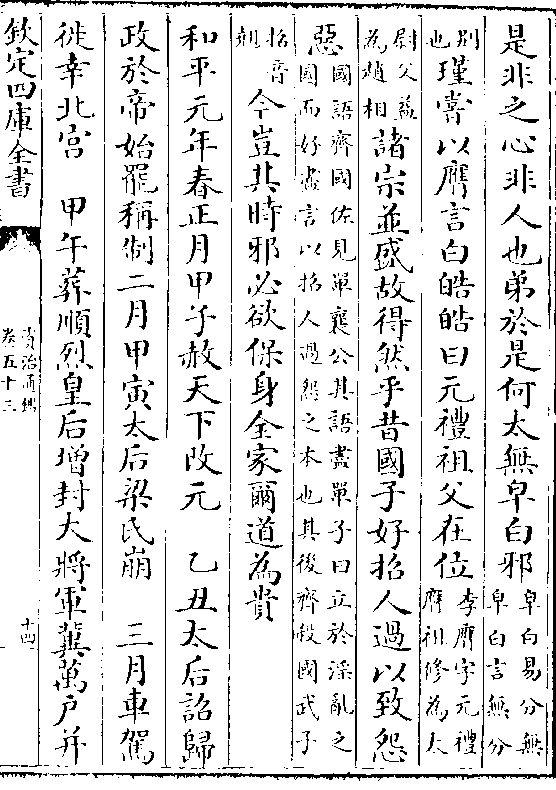 是非之心非人也弟於是何太無皁白邪皁白易分無皁白言無分
別也瑾嘗以膺言白皓皓曰元禮祖父在位李膺字元禮膺祖修為太
尉父益為趙相諸宗並盛故得然乎昔國子好招人過以致怨
惡國語齊國佐見單襄公其語盡單子曰立於淫亂之國而好盡言以招人過怨之本也其後齊殺國武子
招音翹今豈其時邪必欲保身全家爾道為貴
和平元年春正月甲子赦天下改元 乙丑太后詔歸
政於帝始罷稱制二月甲寅太后梁氏崩 三月車駕
徙幸北宮 甲午葬順烈皇后增封大將軍冀萬戶并
欽定四庫全書
資治通鑑
卷五十三
十四